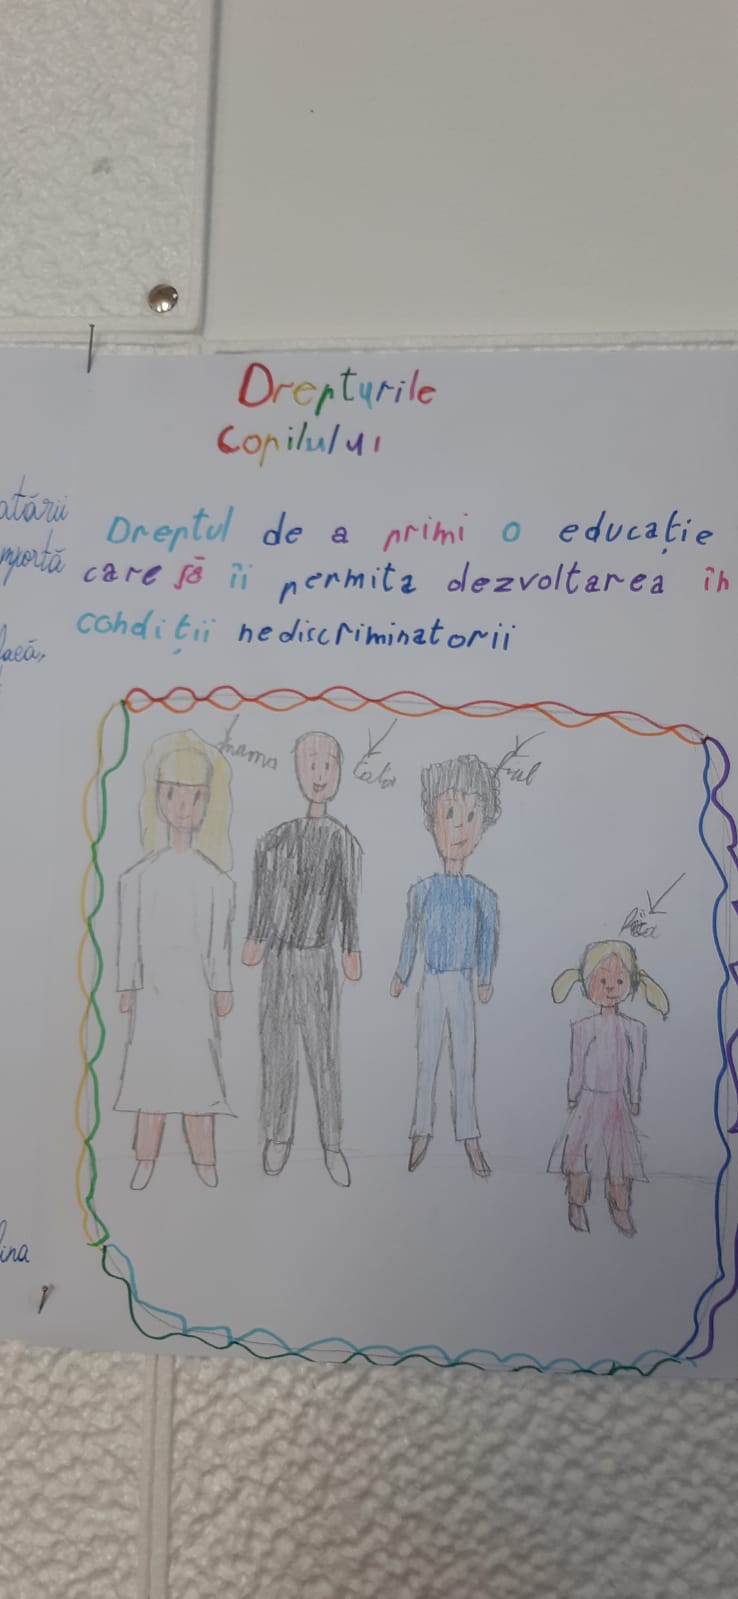 Drepturile
Copilului
Dreptul de a primi o educație
care să îi permita dezvoltarea în
condiții nediscriminatorii
mama
tata
atării
mportă
facă,
ina